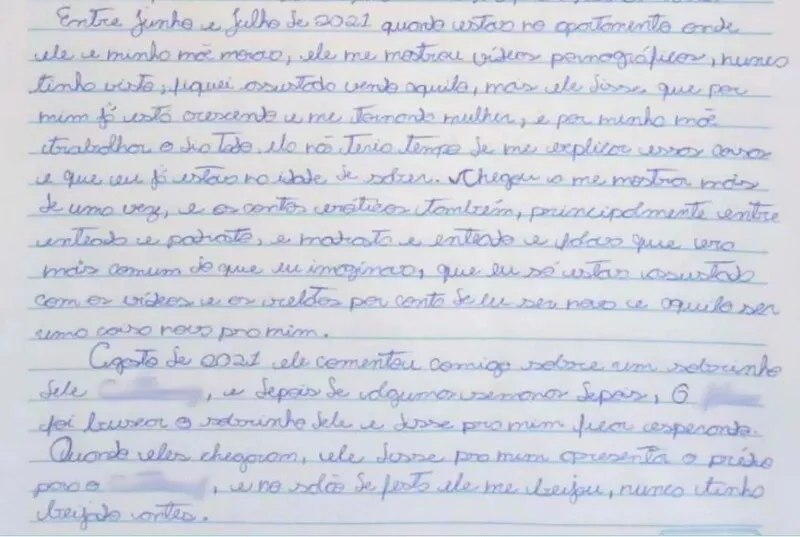 Entre Junho e Julho de 2021 quando estava no apartamento onde
ele e minha mãe morao, ele me mostrou vídeos pornográficos, nunca
tinha visto, fiquei assustada vendo aquilo, mas ele disse, que por
mim já está crescendo e me tornando mulher, e por minha mãe
trabalhar o dia todo ela não teria tempo de me explicar essas coisas
e que eu já estava na idade de saber. Chegou a me mostrar mais
de uma vez, e os contos eróticos também, principalmente entre
enteada e padrasto, e madrasta e enteado e falava que era
mais comum do que eu imaginava, que eu só estava assustada
com os vídeos e os relatos por conta de eu ser nova e aquilo ser
uma coisa nova pra mim.
Agosto de 2021 ele comentou comigo sobre um sobrinho
dele, e depois de algumas semanas depois, O
foi buscar o sobrinho dele e disse pra mim ficar esperando.
Quando eles chegaram, ele disse pra mim apresentar o prédio
para o, e no salão de festa ele me beijou, nunca tinha
beijado antes.